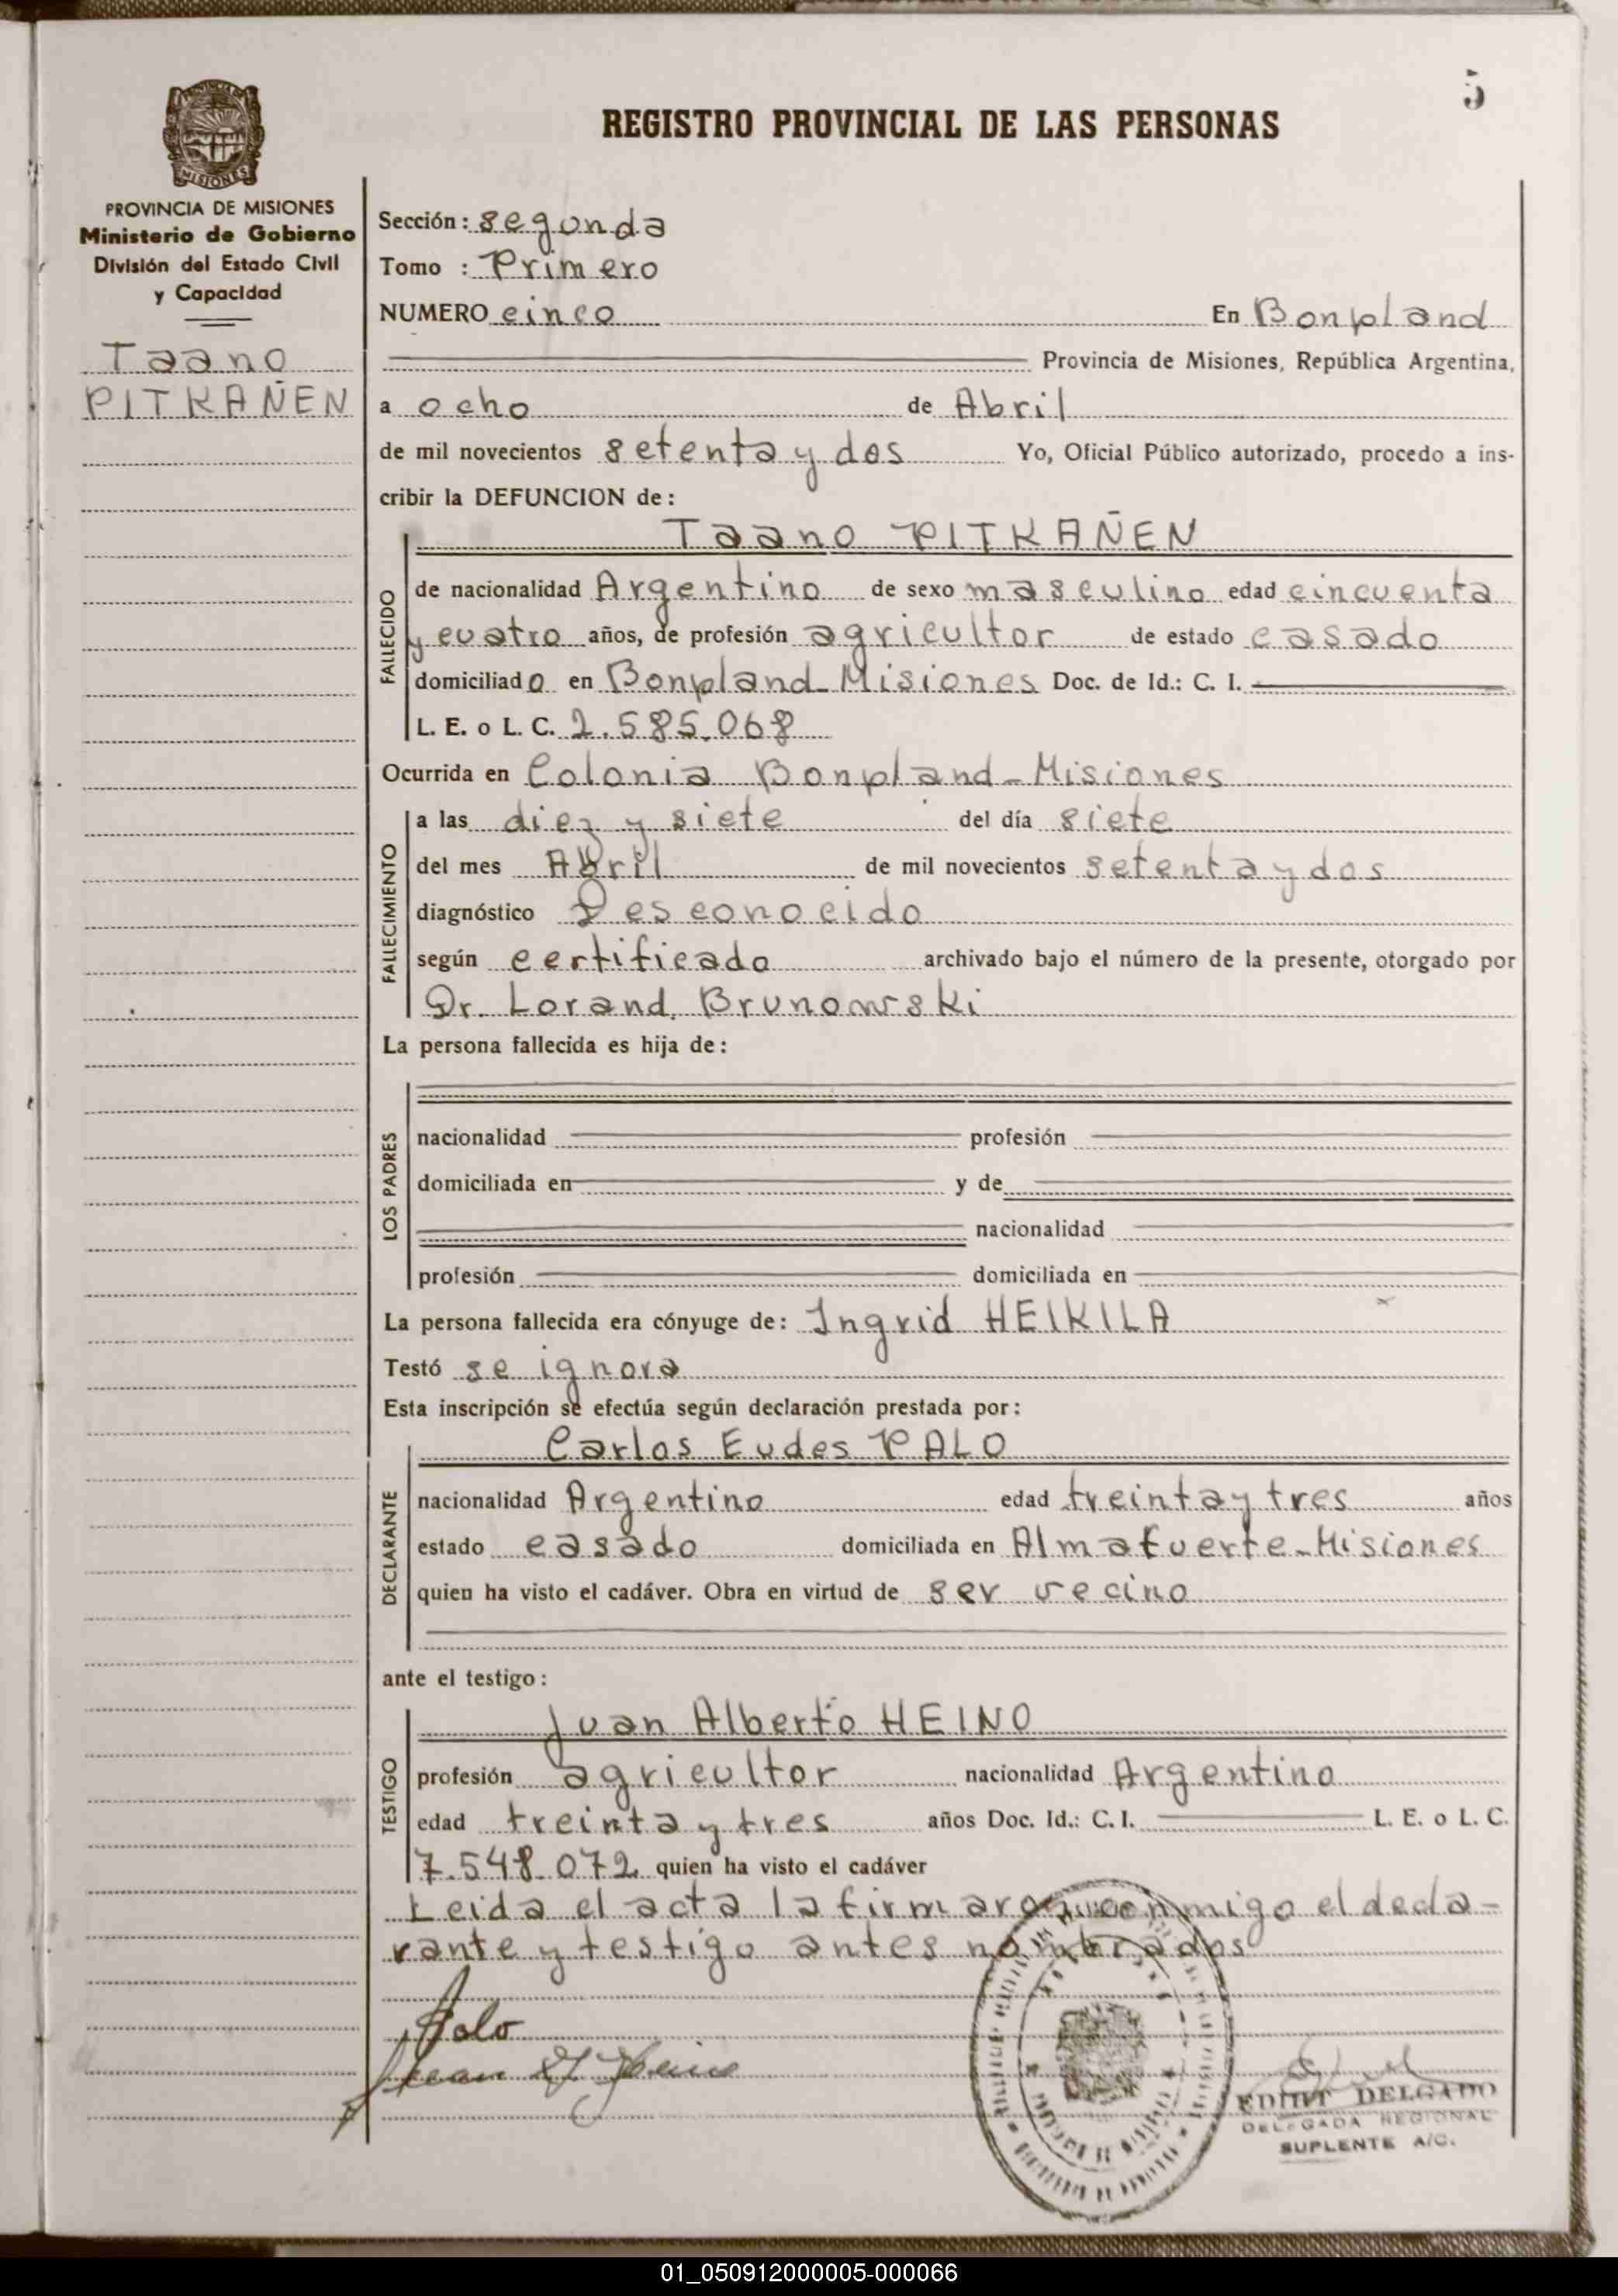 5
REGISTRO PROVINCIAL DE LAS PERSONAS
MISIONES
PROVINCIA DE MISIONES
Ministerio de Gobierno
División del Estado Civil
y Capacidad
Taano
PITKAÑEN
Sección: segunda
Tomo : Primero
NUMERO cinco En Bonpland
Provincia de Misiones, República Argentina,
a ocho de Abril
de mil novecientos setenta y dos Yo, Oficial Público autorizado, procedo a ins-
cribir la DEFUNCION de:
Taano PITKAÑEN
FALLECIDO
de nacionalidad Argentino de sexo masculino edad cincuenta
y cuatro años, de profesión agricultor de estado casado
domiciliado en Bonpland-Misiones Doc. de Id.: C. I.
L. E. o L. C. 2.585.068
Ocurrida en Colonia Bonpland-Misiones
FALLECIMIENTO
a las diez y siete del día siete
del mes Abril de mil novecientos setenta y dos
diagnóstico Desconocido
según certificado archivado bajo el número de la presente, otorgado por
Dr. Lorand Brunowski
La persona fallecida es hija de:
LOS PADRES
nacionalidad profesión
domiciliada en y de
nacionalidad
profesión domiciliada en
La persona fallecida era cónyuge de: Ingrid HEIKILA
Testó se ignora
Esta inscripción se efectúa según declaración prestada por:
Carlos Eudes PALO
DECLARANTE
nacionalidad Argentino edad treinta y tres años
estado casado domiciliada en Almafuerte-Misiones
quien ha visto el cadáver. Obra en virtud de ser vecino
ante el testigo:
Juan Alberto HEINO
TESTIGO
profesión agricultor nacionalidad Argentino
edad treinta y tres años Doc. Id.: C. I. L. E. o L. C.
7.548.072 quien ha visto el cadáver
Leida el acta la firmaron conmigo el decla-
rante y testigo antes nombrados
Palo
Juan A Heino
EDIHT DELGADO
DELEGADA REGIONAL
SUPLENTE A/C.
01_050912000005-000066